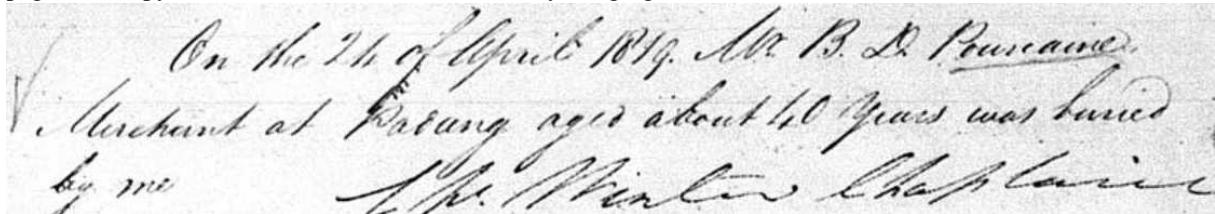 On the 24 of April 1819. Mr. B. D.
Merchant at Padang aged about 40 Years was buried
by me Winter Chaplain